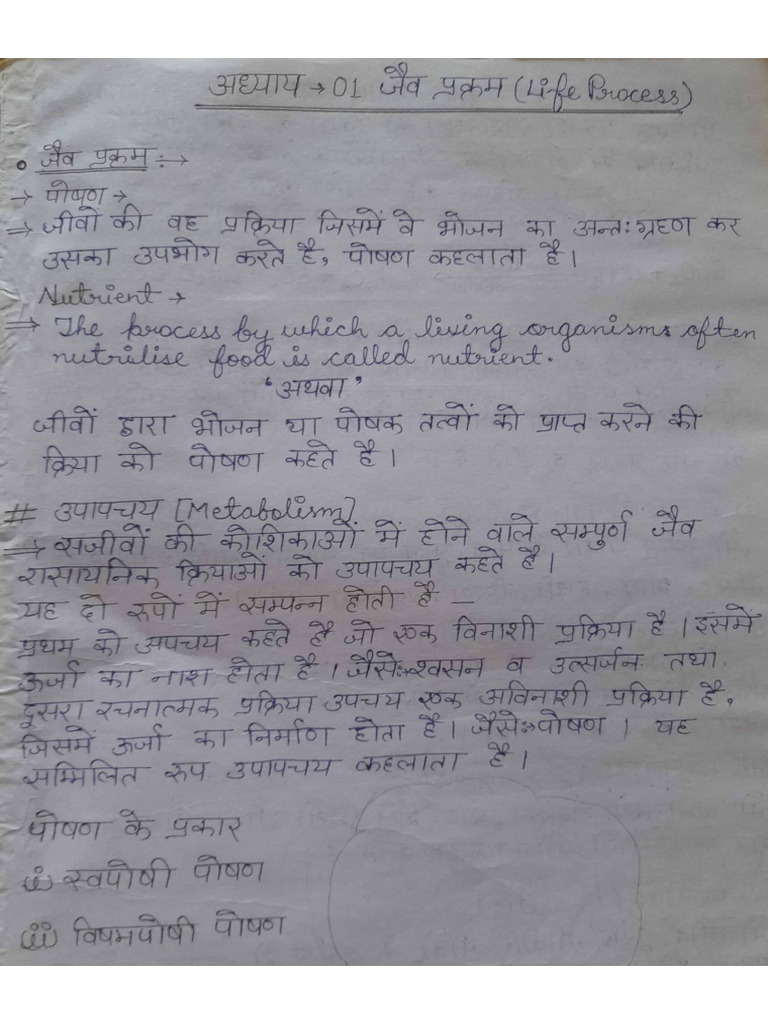 अध्याय → 01 जैव प्रक्रम (Life Process)
• जैव प्रक्रम :→
→ पोषण →
⇒ जीवों की वह प्रक्रिया जिसमें वे भोजन का अन्तःग्रहण कर
उसका उपभोग करते है, पोषण कहलाता है।
Nutrient →
⇒ The process by which a living organisms often
nutrilise food is called nutrient.
'अथवा'
जीवों द्वारा भोजन या पोषक तत्वों को प्राप्त करने की
क्रिया को पोषण कहते है।
# उपापचय [Metabolism]
⇒ सजीवों की कोशिकाओं में होने वाले सम्पुर्ण जैव
रासायनिक क्रियाओं को उपापचय कहते है।
यह दो रुपों में सम्पन्न होती है –
प्रथम को अपचय कहते है जो एक विनाशी प्रक्रिया है। इसमें
ऊर्जा का नाश होता है। जैसे→श्वसन व उत्सर्जन तथा
दूसरा रचनात्मक प्रक्रिया उपचय एक अविनाशी प्रक्रिया है,
जिसमें ऊर्जा का निर्माण होता है। जैसे→पोषण। यह
सम्मिलित रुप उपापचय कहलाता है।
पोषण के प्रकार
(i) स्वपोषी पोषण
(ii) विषमपोषी पोषण